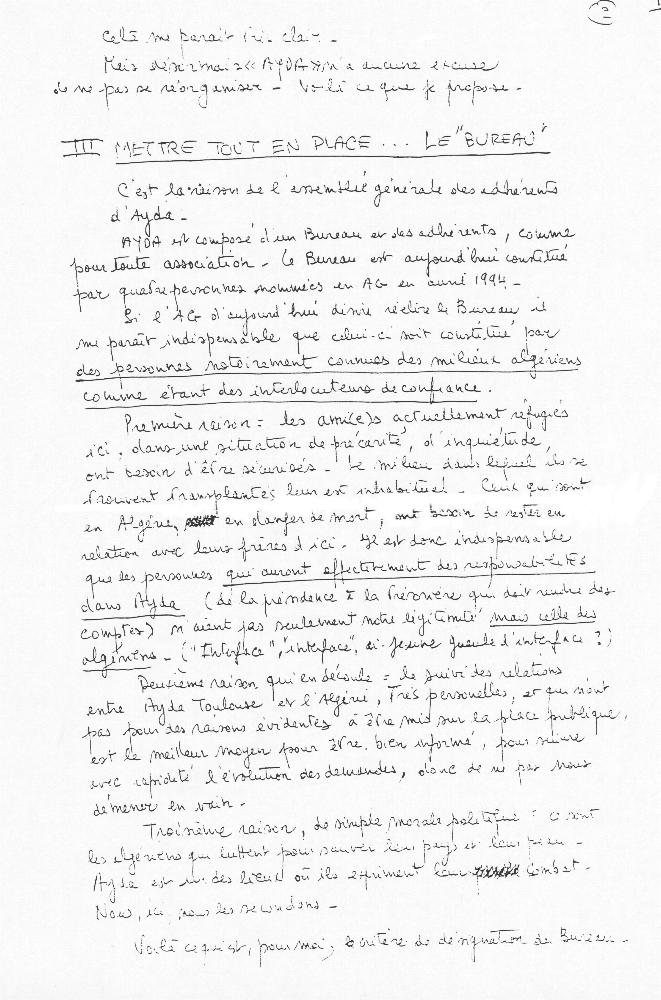 2
Celà me parait très clair.
Mais désormais « AYDA » n'a aucune excuse
de ne pas se réorganiser - Voilà ce que je propose.
III METTRE TOUT EN PLACE... LE "BUREAU"
C'est la raison de l'assemblée générale des adhérents
d'Ayda -
AYDA est composé d'un Bureau et des adhérents, comme
pour toute association - Le Bureau est aujourd'hui constitué
par quatre personnes nommées en AG en avril 1994.
Si l'AG d'aujourd'hui désire réélire le Bureau il
me paraît indispensable que celui-ci soit constitué par
des personnes notoirement connues des milieux algériens
comme étant des interlocuteurs de confiance.
Première raison = les ami(e)s actuellement réfugiés
ici, dans une situation de précarité, d'inquiétude,
ont besoin d'être sécurisés - Le milieu dans lequel ils se
trouvent transplantés leur est inhabituel - Ceux qui sont
en Algérie, en danger de mort, ont besoin de rester en
relation avec leurs frères d'ici - Il est donc indispensable
que les personnes qui auront effectivement des responsabilités
dans Ayda (de la présidence à la trésorière qui doit rendre des
comptes) n'aient pas seulement notre légitimité mais celle des
algériens - ("Interface", "interface", ai-je une gueule d'interface ?)
Deuxième raison qui en découle = le suivi des relations
entre Ayda Toulouse et l'Algérie, très personnelles, et qui n'ont
pas pour des raisons évidentes à être mis sur la place publique,
est le meilleur moyen pour être bien informé, pour suivre
avec rapidité l'évolution des demandes, donc de ne pas nous
démener en vain -
Troisième raison, de simple morale politique = ce sont
les algériens qui luttent pour sauver leur pays et leur peau -
Ayda est un des lieux où ils expriment leur combat -
Nous, ici, nous les secondons -
Voilà ce qui est, pour moi, le critère de désignation du Bureau -